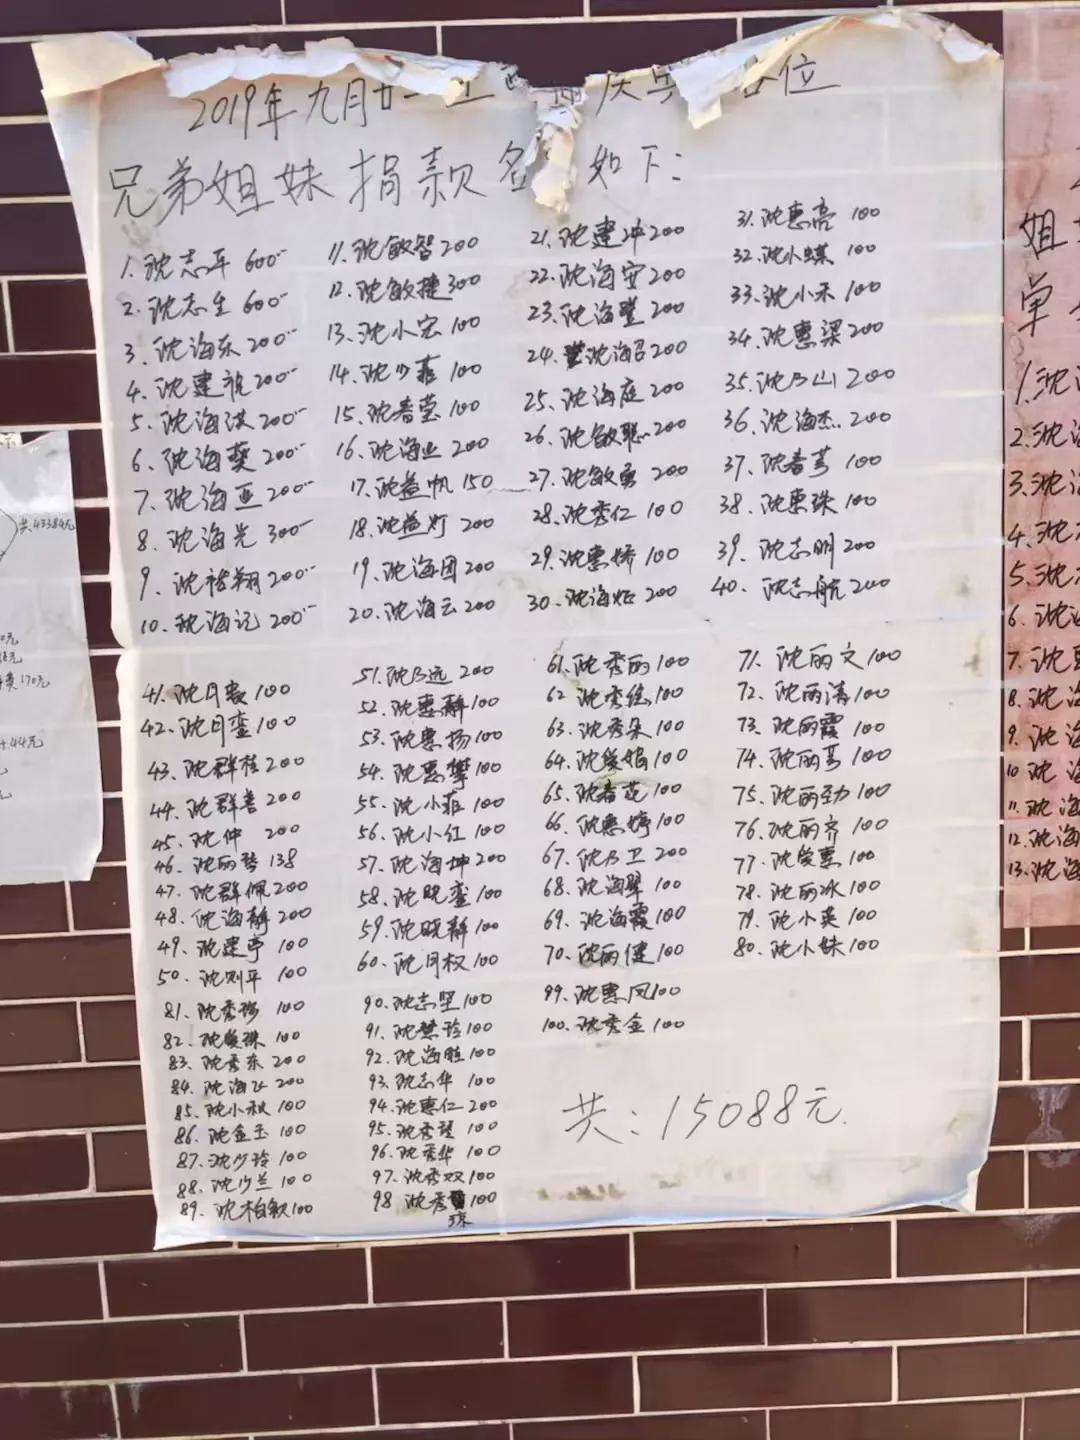 2019年九月廿 位
兄弟姐妹捐款名 如下:
1. 沈志平 600
2. 沈志生 600
3. 沈海东 200
4. 沈建龙 200
5. 沈海洪 200
6. 沈海葵 200
7. 沈海亚 200
8. 沈海光 300
9. 沈裕翔 200
10. 沈海记 200
11. 沈敏智 200
12. 沈敏捷 300
13. 沈小宏 100
14. 沈少菲 100
15. 沈春莹 100
16. 沈海业 200
17. 沈益帆 150
18. 沈益灯 200
19. 沈海团 200
20. 沈海云 200
21. 沈建冲 200
22. 沈海安 200
23. 沈海丰 200
24. 沈海召 200
25. 沈海庭 200
26. 沈敏聪 200
27. 沈敏勇 200
28. 沈秀仁 100
29. 沈惠娇 100
30. 沈海 200
31. 沈惠亮 100
32. 沈小蝶 100
33. 沈小禾 100
34. 沈惠梁 200
35. 沈乃山 200
36. 沈海杰 200
37. 沈春芳 100
38. 沈惠珠 100
39. 沈志明 200
40. 沈志航 200
41. 沈月 100
42. 沈月銮 100
43. 沈群桂 200
44. 沈群善 200
45. 沈仲 200
46. 沈丽琴 138
47. 沈群佩 200
48. 沈海静 200
49. 沈建亭 100
50. 沈则平 100
51. 沈乃远 200
52. 沈惠静 100
53. 沈惠扬 100
54. 沈惠攀 100
55. 沈小菲 100
56. 沈小红 100
57. 沈海坤 200
58. 沈晓銮 100
59. 沈晓静 100
60. 沈月权 100
61. 沈秀丽 100
62 沈秀 100
63. 沈秀朵 100
64. 沈爱娟 100
65. 沈春花 100
66. 沈惠婷 100
67. 沈乃卫 200
68. 沈海翠 100
69. 沈海霞 100
70. 沈丽健 100
71. 沈丽文 100
72. 沈丽清 100
73. 沈丽霞 100
74. 沈丽芳 100
75. 沈丽劲 100
76. 沈丽齐 100
77. 沈爱惠 100
78. 沈丽冰 100
79. 沈小英 100
80. 沈小妹 100
81. 沈秀珍 100
82. 沈爱珠 100
83. 沈秀东 200
84. 沈海飞 200
85. 沈小秋 100
86. 沈金玉 100
87. 沈少玲 100
88. 沈少兰 100
89. 沈柏钦 100
90. 沈志坚 100
91. 沈慧玲 100
92. 沈海胜 100
93. 沈志华 100
94. 沈惠仁 200
95. 沈秀琴 100
96. 沈秀华 100
97. 沈秀双 100
98 沈秀琼 100
99. 沈惠凤 100
100. 沈秀金 100
共: 15088元.
共43384元
费170元
44元
姐
单
1. 沈
2. 沈海
3. 沈海
4. 沈
5. 沈
6. 沈
7. 沈
8. 沈海
9. 沈海
10 沈海
11. 沈海
12. 沈海
13. 沈海